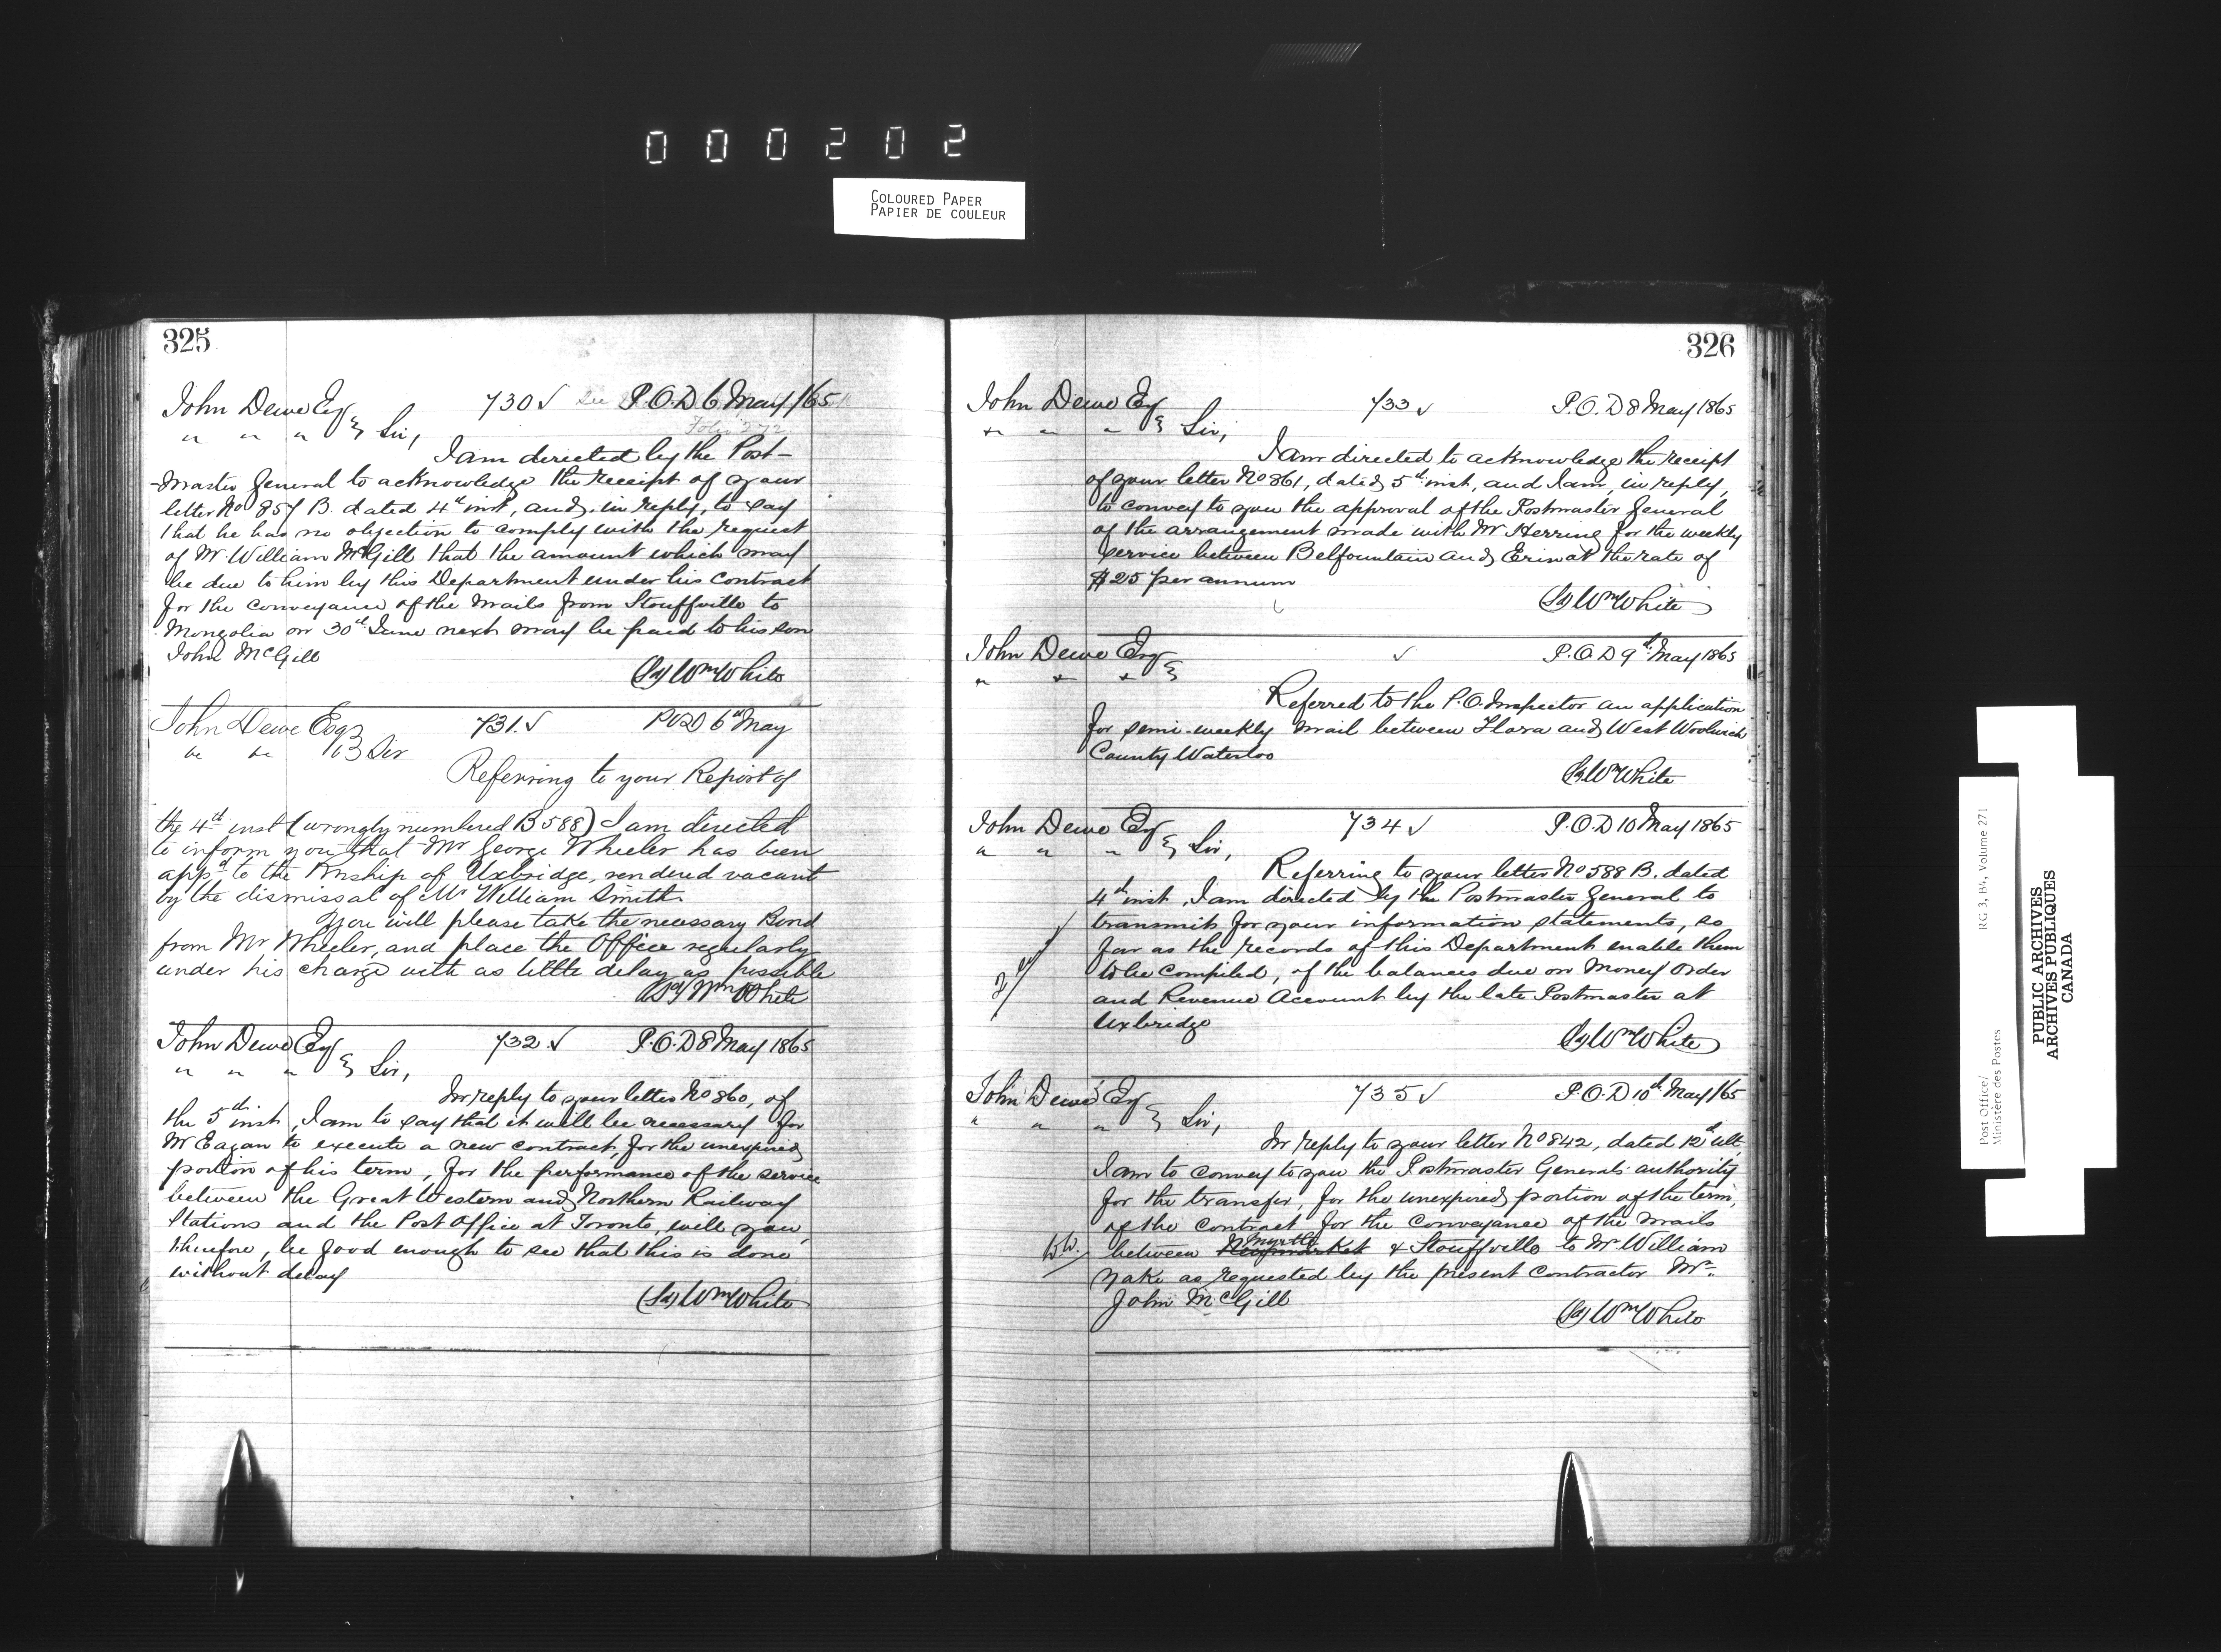 000202
COLOURED PAPER
PAPIER DE COULEUR
325
John Dewe Esq 730 ✓ See P.O.D 6 May /65
" " " } Sir, Folio 272
I am directed by the Post-
-master General to acknowledge the receipt of your
letter No 857 B. dated 4th inst, and, in reply, to say
that he has no objection to comply with the request
of Mr William McGill that the amount which may
be due to him by this Department under his Contract
for the conveyance of the Mails from Stouffville to
Mongolia on 30th June next may be paid to his son
John McGill
(Sd) Wm White
John Dewe Esq 731. ✓ POD 6th May
" " } Sir
Referring to your Report of
the 4th inst (wrongly numbered B 588) I am directed
to inform you that Mr George Wheeler has been
appd to the Pmship of Uxbridge, rendered vacant
by the dismissal of Mr William Smith.
You will please take the necessary Bond
from Mr Wheeler, and place the Office regularly
under his charge with as little delay as possible
(Sd) Wm White
John Dewe Esq 732. ✓ P.O.D 8 May 1865
" " " } Sir,
In reply to your letter No 860, of
the 5th inst, I am to say that it will be necessary for
Mr Eagan to execute a new contract, for the unexpired
portion of his term, for the performance of the service
between the Great Western and Northern Railway
Stations and the Post Office at Toronto, will you,
therefore, be good enough to see that this is done
without delay
(Sd) Wm White
326
John Dewe Esq 733 ✓ P.O.D 8 May 1865
" " " } Sir,
I am directed to acknowledge the receipt
of your letter No 861, dated 5th inst, and I am, in reply,
to convey to you the approval of the Postmaster General
of the arrangement made with Mr Herring for the weekly
service between Belfountain and Erin at the rate of
$25 per annum
(Sd) Wm White
John Dewe Esq ✓ P.O.D 9th May 1865
" " " }
Referred to the P.O. Inspector an application
for semi-weekly mail between Flora and West Woolwich
County Waterloo
(Sd) Wm White
John Dewe Esq 734 ✓ P.O.D 10 May 1865
" " " } Sir,
Referring to your letter No 588 B. dated
4th inst, I am directed by the Postmaster General to
transmit for your information statements, so
far as the records of this Department enable them
to be compiled, of the balances due on Money Order
and Revenue Account by the late Postmaster at
Uxbridge
(Sd) Wm White
John Dewe Esq 735 ✓ P.O.D 10th May /65
" " " } Sir,
In reply to your letter No 842, dated 12th ult,
I am to convey to you the Postmaster Generals authority
for the transfer, for the unexpired portion of the term,
of the contract for the conveyance of the mails
W.W. between Newmarket Myrtle & Stouffville to Mr William
Yake as requested by the present contractor Mr.
John McGill
(Sd) Wm White
Post Office/ RG 3, B4, Volume 271
Ministère des Postes
PUBLIC ARCHIVES
ARCHIVES PUBLIQUES
CANADA